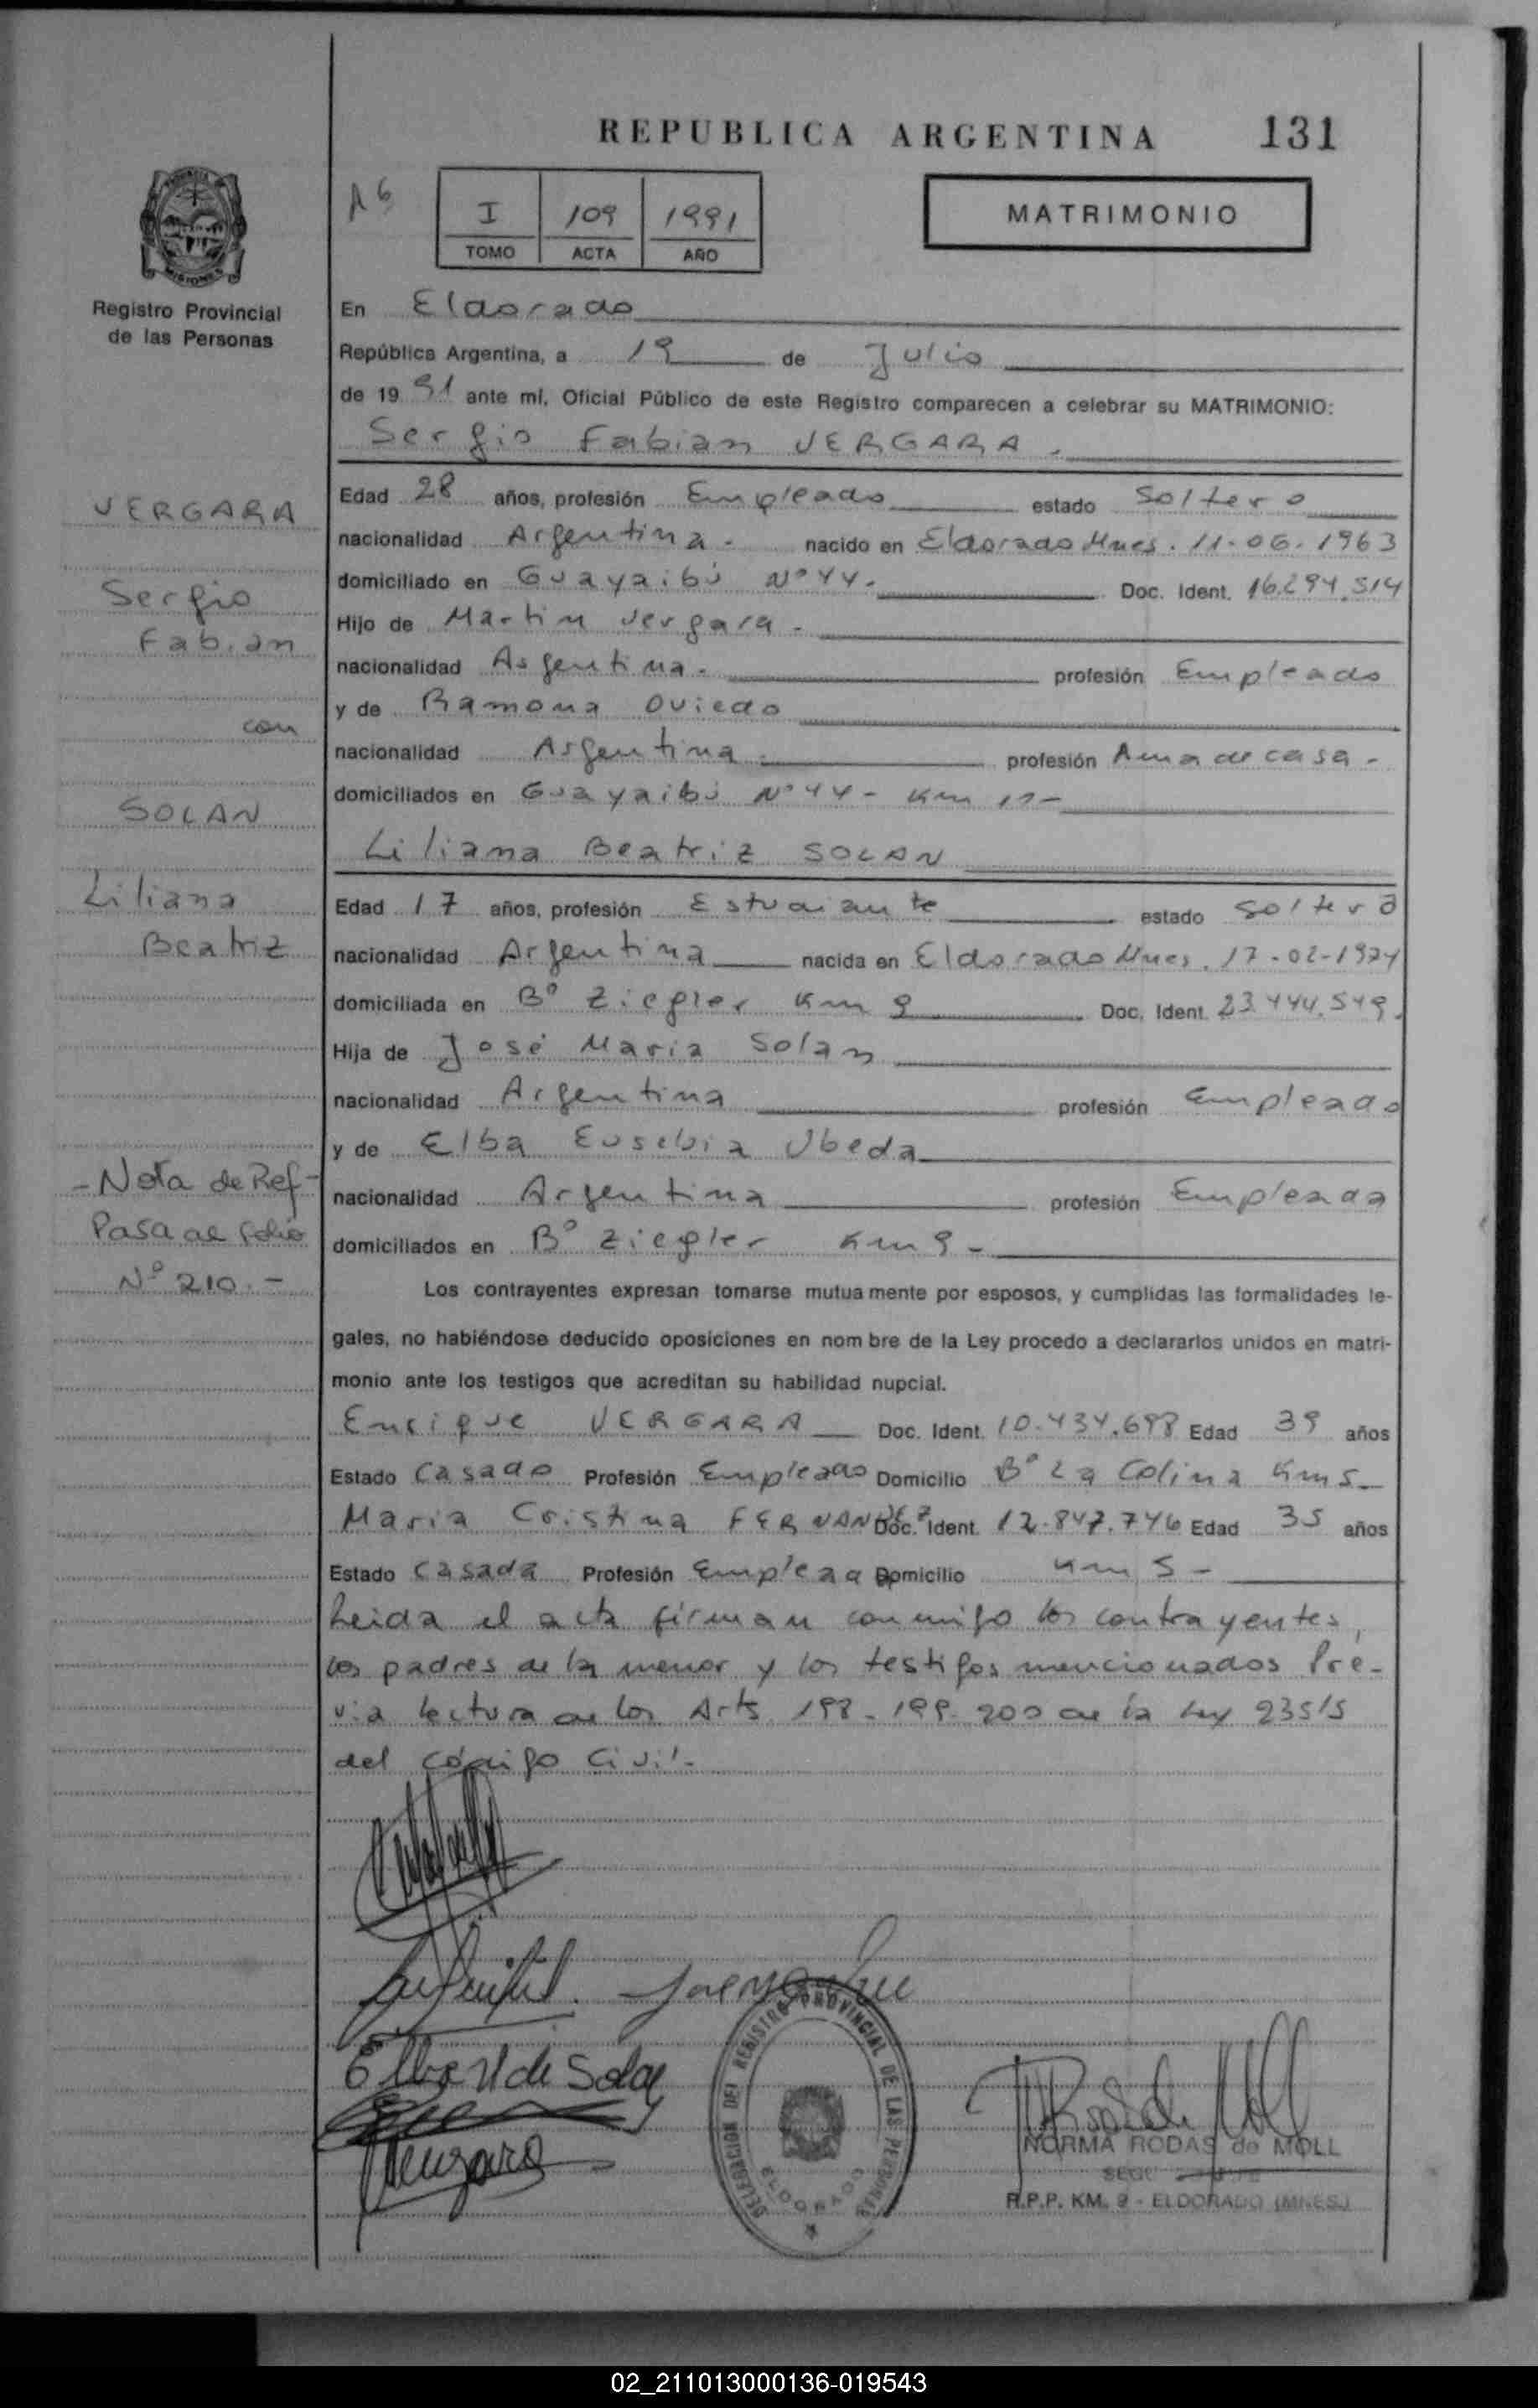 REPUBLICA ARGENTINA 131
A6
I 109 1991
TOMO ACTA AÑO
MATRIMONIO
PROVINCIA
MISIONES
Registro Provincial
de las Personas
En Eldorado
República Argentina, a 19 de Julio
de 19 91 ante mí, Oficial Público de este Registro comparecen a celebrar su MATRIMONIO:
Sergio Fabian VERGARA.
Edad 28 años, profesión Empleado estado Soltero
nacionalidad Argentina. nacido en Eldorado Mnes. 11-06-1963
domiciliado en Guayaibú Nº 44. Doc. Ident. 16.294.514
Hijo de Martin Vergara.
nacionalidad Argentina. profesión Empleado
y de Ramona Oviedo
nacionalidad Argentina profesión Ama de casa.
domiciliados en Guayaibú Nº 44 - Km
Liliana Beatriz SOLAN
Edad 17 años, profesión Estudiante estado soltera
nacionalidad Argentina nacida en Eldorado Mnes. 17-02-1974
domiciliada en Bº Ziegler Km 9 Doc. Ident. 23.444.549.
Hija de José Maria Solan
nacionalidad Argentina profesión Empleado
y de Elba Eusebia Ubeda
nacionalidad Argentina profesión Empleada
domiciliados en Bº Ziegler Km 9 -
Los contrayentes expresan tomarse mutua mente por esposos, y cumplidas las formalidades le-
gales, no habiéndose deducido oposiciones en nom bre de la Ley procedo a declararlos unidos en matri-
monio ante los testigos que acreditan su habilidad nupcial.
Enrique VERGARA Doc. Ident. 10.434.698 Edad 39 años
Estado Casado Profesión Empleado Domicilio Bº La Colina Km 5
Maria Cristina FERNANDEZ Doc. Ident. 12.847.746 Edad 35 años
Estado Casada Profesión Empleada Domicilio Km 5 -
Leida el acta firman conmigo los contrayentes,
los padres de la menor y los testigos mencionados Pre-
via lectura de los Arts. 198-199-200 de la Ley 23515
del código Civil-
VERGARA
Sergio
Fabian
con
SOLAN
Liliana
Beatriz
- Nota de Ref -
Pasa al folio
Nº 210. -
Elba U de Solan
Vergara
DELEGACION DEL REGISTRO PROVINCIAL DE LAS PERSONAS
ELDORADO
NORMA RODAS de MOLL
R.P.P. KM. 9 - ELDORADO (MNES.)
02_211013000136-019543